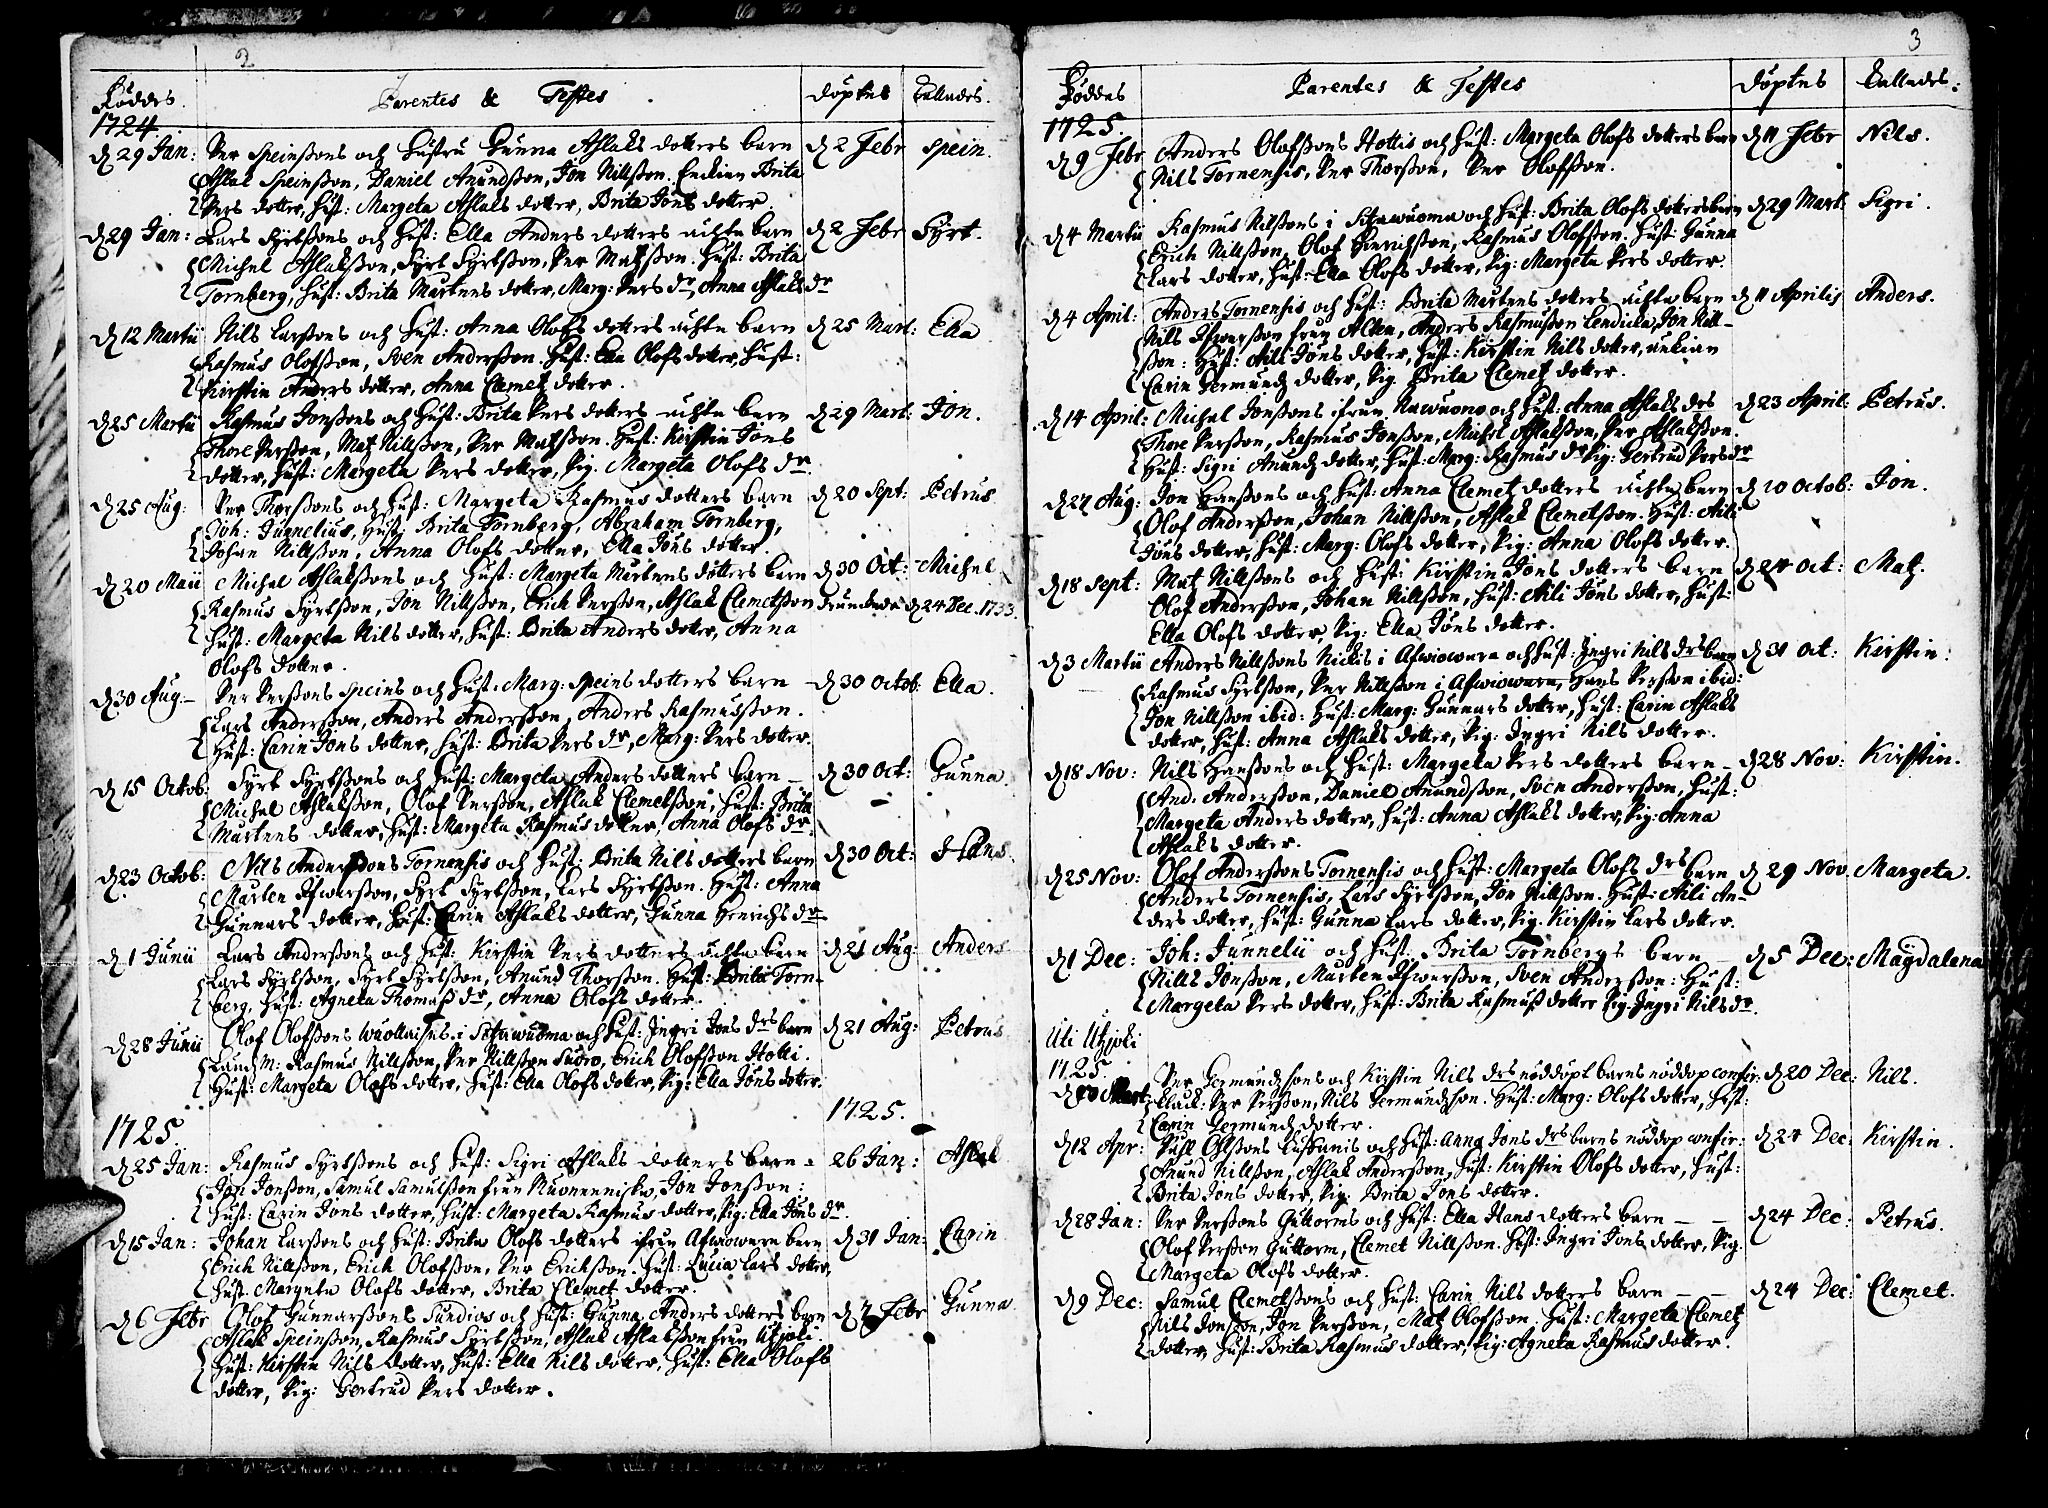 2
Föddes. Parentes & Testes. döptes Kallades.
1724.
d 29 Jan: Per Speinssons och hustru Gunna Aslaks dotters barn d 2 Febr Spein.
Aslak Speinsson, Daniel Anundsson, Jon Nillsson. Enkian Brita
Pers dotter, hust: Margeta Aslaks dotter, Brita Jöns dotter.
d 29 Jan: Lars Syrkssons och hust: Ella Anders dotters ächta barn d 2 Febr Syrk.
Michel Aslaksson, Syrk Syrksson, Per Matsson. hust: Brita
Tornberg, hust: Brita Mårtens dotter, Marg: Pers dr, Anna Aslaks dr
d 12 Martii Nils Larssons och hust: Anna Olofs dotters ächta barn d 25 Mart: Ella
Rasmus Olofsson, Sven Andersson. hust: Ella Olofs dotter, hust:
Kirstin Anders dotter, Anna Clemetz dotter.
d 25 Martii Rasmus Jonssons och hust: Brita Pers dotters ächta barn d 29 Mart: Jon.
Thore Persson, Matz Nillsson, Per Matsson. hust: Kirstin Jöns
dotter, hust: Margeta Pers dotter, Pig. Margeta Olofs dr.
d 25 Aug: Per Thorssons och hust: Margeta Rasmus dotters barn d 20 Sept: Petrus
Joh: Junnelius, hust: Brita Tornberg, Abraham Tornberg,
Johan Nillsson, Anna Olofs dotter, Ella Jöns dotter.
d 20 Maii Michel Aslakssons och hust: Margeta Mårtens dotters barn d 30 Oct: Michel
Rasmus Syrksson, Jon Nillsson, Erich Persson, Aslak Clemetsson d 24 Dec. 1733.
hust: Margeta Nils dotter, hust: Brita Anders dotter, Anna
Olofs dotter.
d 30 Aug. Per Perssons Speins och hust. Marg: Speins dotters barn d 30 Octob: Ella.
Lars Andersson, Anders Andersson, Anders Rasmusson.
hust: Carin Jöns dotter, hust: Brita Pers dr, Marg: Pers dotter.
d 15 Octob: Syrk Syrkssons och hust: Margeta Anders dotters barn d 30 Oct: Gunna.
Michel Aslaksson, Olof Persson, Aslak Clemetsson, hust: Brita
Mårtens dotter, hust: Margeta Rasmus dotter, Anna Olofs dr.
d 23 Octob: Nils Anderssons Tornensis och hust: Brita Nils dotters barn d 30 Oct: Hans.
Mårten Ifwarsson, Syrk Syrksson, Lars Syrksson. hust: Anna
Gunnars dotter, hust: Carin Aslaks dotter, Gunna Henrichs dr
d 1 Junii Lars Anderssons och hust: Kirstin Pers dotters ächta barn d 21 Aug: Anders
Lars Syrksson, Syrk Syrksson, Anund Thorsson. hust: Brita Torn-
berg, hust: Agneta Thomass dr, Anna Olofs dotter.
d 28 Junii Olof Olofssons i Sitawuoma och hust: Ingri Jöns drs barn d 21 Aug: Petrus
Landz M: Rasmus Nillsson, Per Nillsson, Erich Olofsson Hotti.
hust: Margeta Olofs dotter, hust: Ella Olofs dotter, Pig: Ella Jöns dotter.
1725. 1725.
d 25 Jan: Rasmus Syrkssons och hust: Sigri Aslaks dotters barn 26 Jan: Aslak
Jon Jonsson, Samul Samulsson, Jon Jonsson:
hust: Carin Jöns dotter, hust: Margeta Rasmus dotter, Pig: Ella Jöns dr.
d 15 Jan: Johan Larssons och hust: Brita Olofs dotters ifrån Afwiowara barn d 31 Jan: Carin
Erich Nillsson, Erich Olofsson, Per Erichsson. hust: Lucia Lars dotter,
hust: Margeta Olofs dotter, Brita Clemet dotter.
d 6 Febr Olof Gunnarssons Sundios och hust: Gunna Anders dotters barn d 7 Febr Gunna.
Aslak Speinsson, Rasmus Syrksson, Aslak Aslaksson från Utzjoki.
hust: Kirstin Nils dotter, hust: Ella Nils dotter, hust: Ella Olofs
dotter, Pig: Gertrud Pers dotter.
3
Föddes Parentes & Testes Döptes Kallades.
1725.
d 9 Febr Anders Olofssons Hottis och hust: Margeta Olofs dotters barn d 11 Febr Nils.
Nils Tornensis, Per Thorsson, Per Olofsson.
d 4 Martii Rasmus Nilssons i Sitawuoma och hust: Brita Olofs dotters barn d 29 Mart. Sigri.
Erich Nillsson, Olof Henrichsson, Rasmus Olofsson, hust: Gunna
Lars dotter, hust: Ella Olofs dotter, Pig: Margeta Pers dotter.
d 4 April: Anders Tornensis och hust: Brita Mårtens dotters ächta barn d 11 Aprilis Anders.
Nils Ifwarsson från Alten, Anders Rasmusson, Jon Nill-
sson. hust: Aili Jöns dotter, hust: Kirstin Nils dotter, enkian
Carin Germundz dotter, Pig. Brita Clemetz dotter.
d 14 April: Michel Jonssons och hust: Anna Aslaks drs d 23 April: Petrus.
Thore Persson, Rasmus Jonsson, Michel Aslaksson, Per Aslaksson.
hust: Sigri Anundz dotter, hust: Marg: Rasmus dr Pig: Gertrud Pers dr
d 27 Aug: Jon Hanssons och hust: Anna Clemetz dotters ächta barn d 10 Octob: Jon.
Olof Andersson, Johan Nillsson, Aslak Clemetsson. hust: Aili
Jöns dotter, hust: Marg: Olofs dotter, Pig: Anna Olofs dotter.
d 18 Sept: Matz Nillssons och hust: Kirstin Jöns dotters barn d 24 Oct: Matz.
Olof Andersson, Johan Nillsson, hust: Aili Jöns dotter, hust:
Ella Olofs dotter, Pig: Ella Jöns dotter.
d 3 Martii Anders Nillssons Nickis i Afwiowara och hust: Ingri Nils drs barn d 31 Oct: Kirstin:
Rasmus Syrksson, Per Nillsson i Afwiowara, Hans Persson ibid:
Jon Nillsson ibid: hust: Marg: Gunnars dotter, hust: Carin Aslaks
dotter, hust: Anna Aslaks dotter, Pig: Ingri Nils dotter.
d 18 Nov: Nils Hanssons och hust: Margeta Pers dotters barn d 28 Nov: Kirstin.
And. Andersson, Daniel Anundsson, Sven Andersson, hust:
Margeta Anders dotter, hust: Anna Aslaks dotter, Pig: Anna
Aslaks dotter.
d 25 Nov: Olof Anderssons Tornensis och hust: Margeta Olofs drs barn d 29 Nov. Margeta.
Anders Tornensis, Lars Syrksson, Jon Nillsson. hust: Aili An-
ders dotter, hust: Gunna Lars dotter, Pig. Kirstin Lars dotter.
d 1 Dec: Joh: Junnelii och hust: Brita Tornbergs barn d 5 Dec: Magdalena
Nills Jonsson, Mårten Ifwarsson, Sven Andersson: hust:
Margeta Pers dotter, hust: Brita Rasmuss dotter Pig: Ingri Nils dr.
Uti Utzjoki
1725. Per Germundzsons och Kirstin Nils drs nöddöpt barns nöddop confir: d 20 Dec: Nils.
Mart: Clack: Per Persson, Nils Germundzson. hust: Marg: Olofs dotter, hust:
Carin Germundz dotter.
d 12 Apr: Påhl Ohlssons och hust: Anna Jöns drs barns nöddop confir: d 24 Dec: Kirstin.
Anund Nillsson, Aslak Andersson, hust: Kirstin Olofs dotter, hust:
Brita Jöns dotter, Pig: Brita Jöns dotter.
d 28 Jan: Per Perssons Guttorms och hust: Ella Hans dotters barn d 24 Dec: Petrus.
Olof Persson Guttorm, Clemet Nillsson. hust: Ingri Jöns dotter, Pig.
Margeta Olofs dotter.
d 9 Dec: Samul Clemetssons och hust: Carin Nils dotters barn d 24 Dec: Clemet.
Nils Jonsson, Jon Persson, Matz Olofsson. hust: Margeta Clemetz
dotter, hust: Brita Rasmus dotter, Pig: Agneta Rasmus dotter.